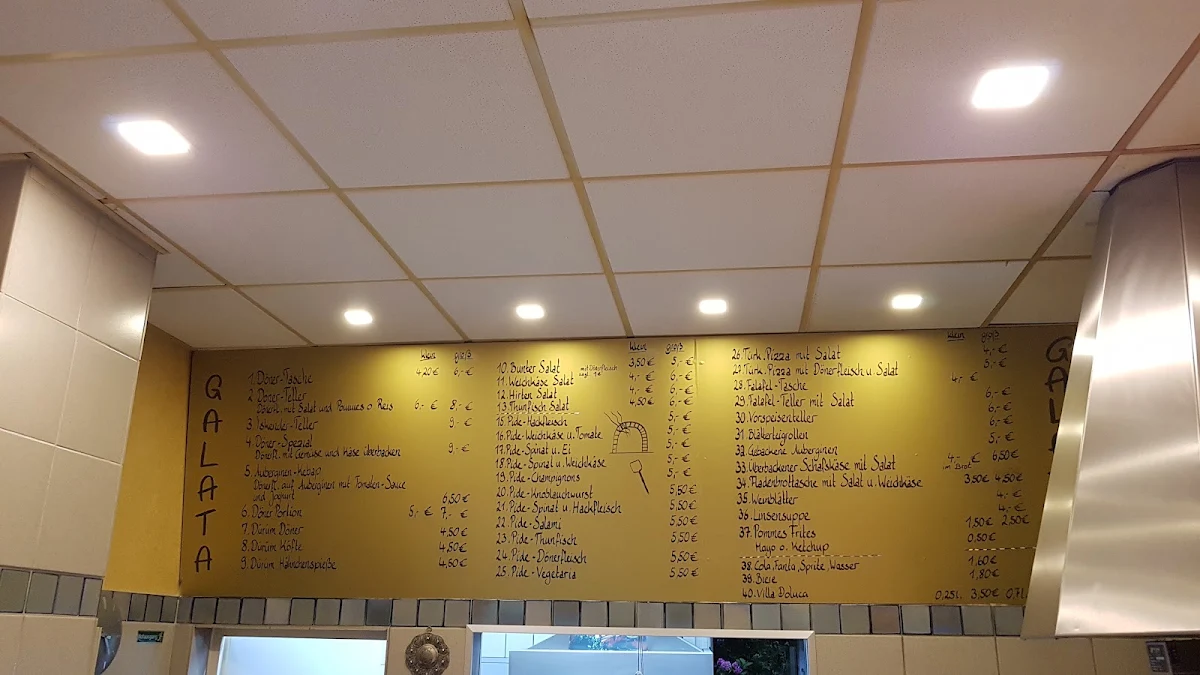 GALATA
klein groß
1. Döner-Tasche 4,20€ 6,-€
2. Döner-Teller
Dönerfl. mit Salat und Pommes o Reis 6,-€ 8,-€
3. Iskender-Teller 9,-€
4. Döner-Spezial
Dönerfl. mit Gemüse und Käse überbacken 9,-€
5. Auberginen-Kebap
Dönerfl. auf Auberginen mit Tomaten-Sauce
und Joghurt 6,50€
6. Döner Portion 5,-€ 7,-€
7. Dürüm Döner 4,50€
8. Dürüm Köfte 4,50€
9. Dürüm Hähnchenspieße 4,50€
klein groß
10. Bunter Salat 3,50€ 5,-€
11. Weichkäse Salat 4,-€ 6,-€
12. Hirten Salat 4,-€ 6,-€
13. Thunfisch Salat 4,50€ 6,-€
15. Pide-Hackfleisch 5,-€
16. Pide-Weichkäse u. Tomate 5,-€
17. Pide-Spinat u. Ei 5,-€
18. Pide-Spinat u. Weichkäse 5,-€
19. Pide-Champignons 5,-€
20. Pide-Knoblauchwurst 5,50€
21. Pide-Spinat u. Hackfleisch 5,50€
22. Pide-Salami 5,50€
23. Pide-Thunfisch 5,50€
24. Pide-Dönerfleisch 5,50€
25. Pide-Vegetaria 5,50€
klein groß
26. Türk. Pizza mit Salat 4,-€
27. Türk. Pizza mit Dönerfleisch u. Salat 5,-€
28. Falafel-Tasche 4,-€
29. Falafel-Teller mit Salat 6,-€
30. Vorspeisenteller 6,-€
31. Bläterteigrollen 5,-€
32. Gebackene Auberginen 6,-€
33. Überbackener Schafskäse mit Salat 4,-€ im Brot 6,50€
34. Fladenbrottasche mit Salat u. Weichkäse 3,50€ 4,50€
35. Weinblätter 4,-€
36. Linsensuppe 4,-€
37. Pommes Frites 1,50€ 2,50€
Mayo o. Ketchup 0,50€
38. Cola, Fanta, Sprite, Wasser 1,60€
39. Biere 1,80€
40. Villa Doluca 0,25l. 3,50€ 0,7l.
GALA